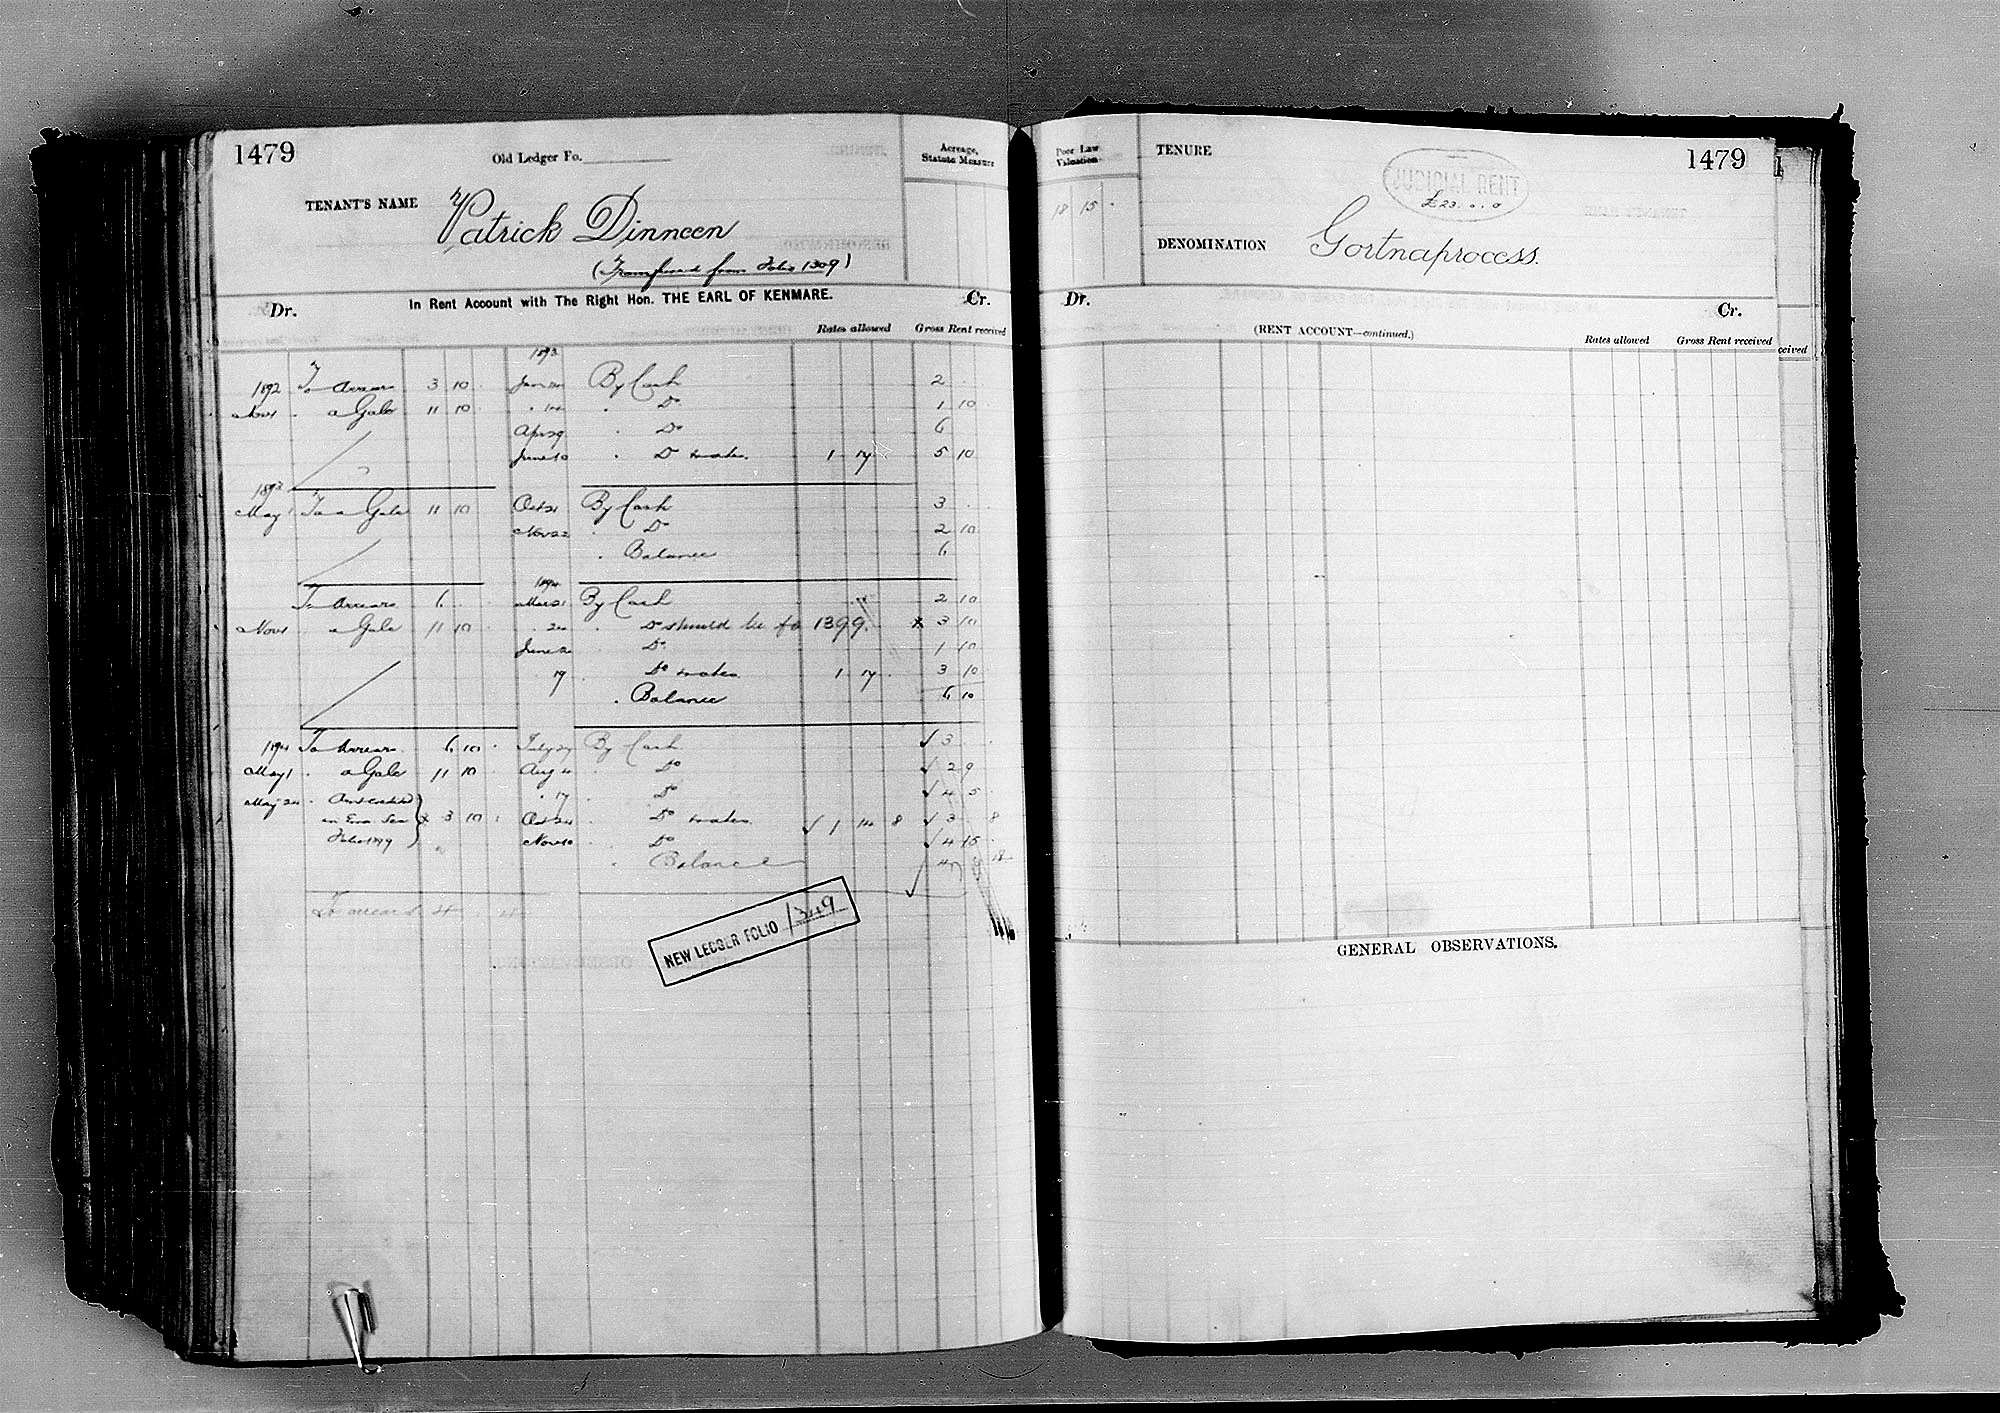 1479
Old Ledger Fo.
Acreage,
Statute Measure
TENANT'S NAME Patrick Dinneen
(Transferred from Folio 1309)
In Rent Account with The Right Hon. THE EARL OF KENMARE.
Dr. Cr.
Rates allowed Gross Rent received
1893
1892 To Arrears 3 10 Jan By Cash 2
Nov 1 " a Gale 11 10 " 14 " Do 1 10
Apr 29 " Do 6
June 10 " Do & rates 1 17 5 10
1893
May 1 To a Gale 11 10 Oct 21 By Cash 3
Nov 22 " Do 2 10
" Balance 6
1894
To Arrears 6 Mar 21 By Cash 2 10
Nov 1 " a Gale 11 10 " 24 " Do should be fo 1399 x 3 10
June 2 " Do 1 10
19 " Do & rates 1 17 3 10
" Balance 6 10
1894 To Arrears 6 10 July 27 By Cash 3
May 1 " a Gale 11 10 Aug 4 " Do 2 9
May 24 " Amt credited " 17 " Do 4 5
in Error See x 3 10 Oct 24 " Do & rates 1 14 8 3 8
Folio 1399 Nov 10 " Do 4 15
" Balance 4 18
To arrears 4
NEW LEDGER FOLIO 1349
Poor Law
Valuation
18 15
TENURE
JUDICIAL RENT
£23. 0. 0
1479
DENOMINATION Gortnaprocess.
Dr. Cr.
(RENT ACCOUNT—continued.)
Rates allowed Gross Rent received
ceived
GENERAL OBSERVATIONS.